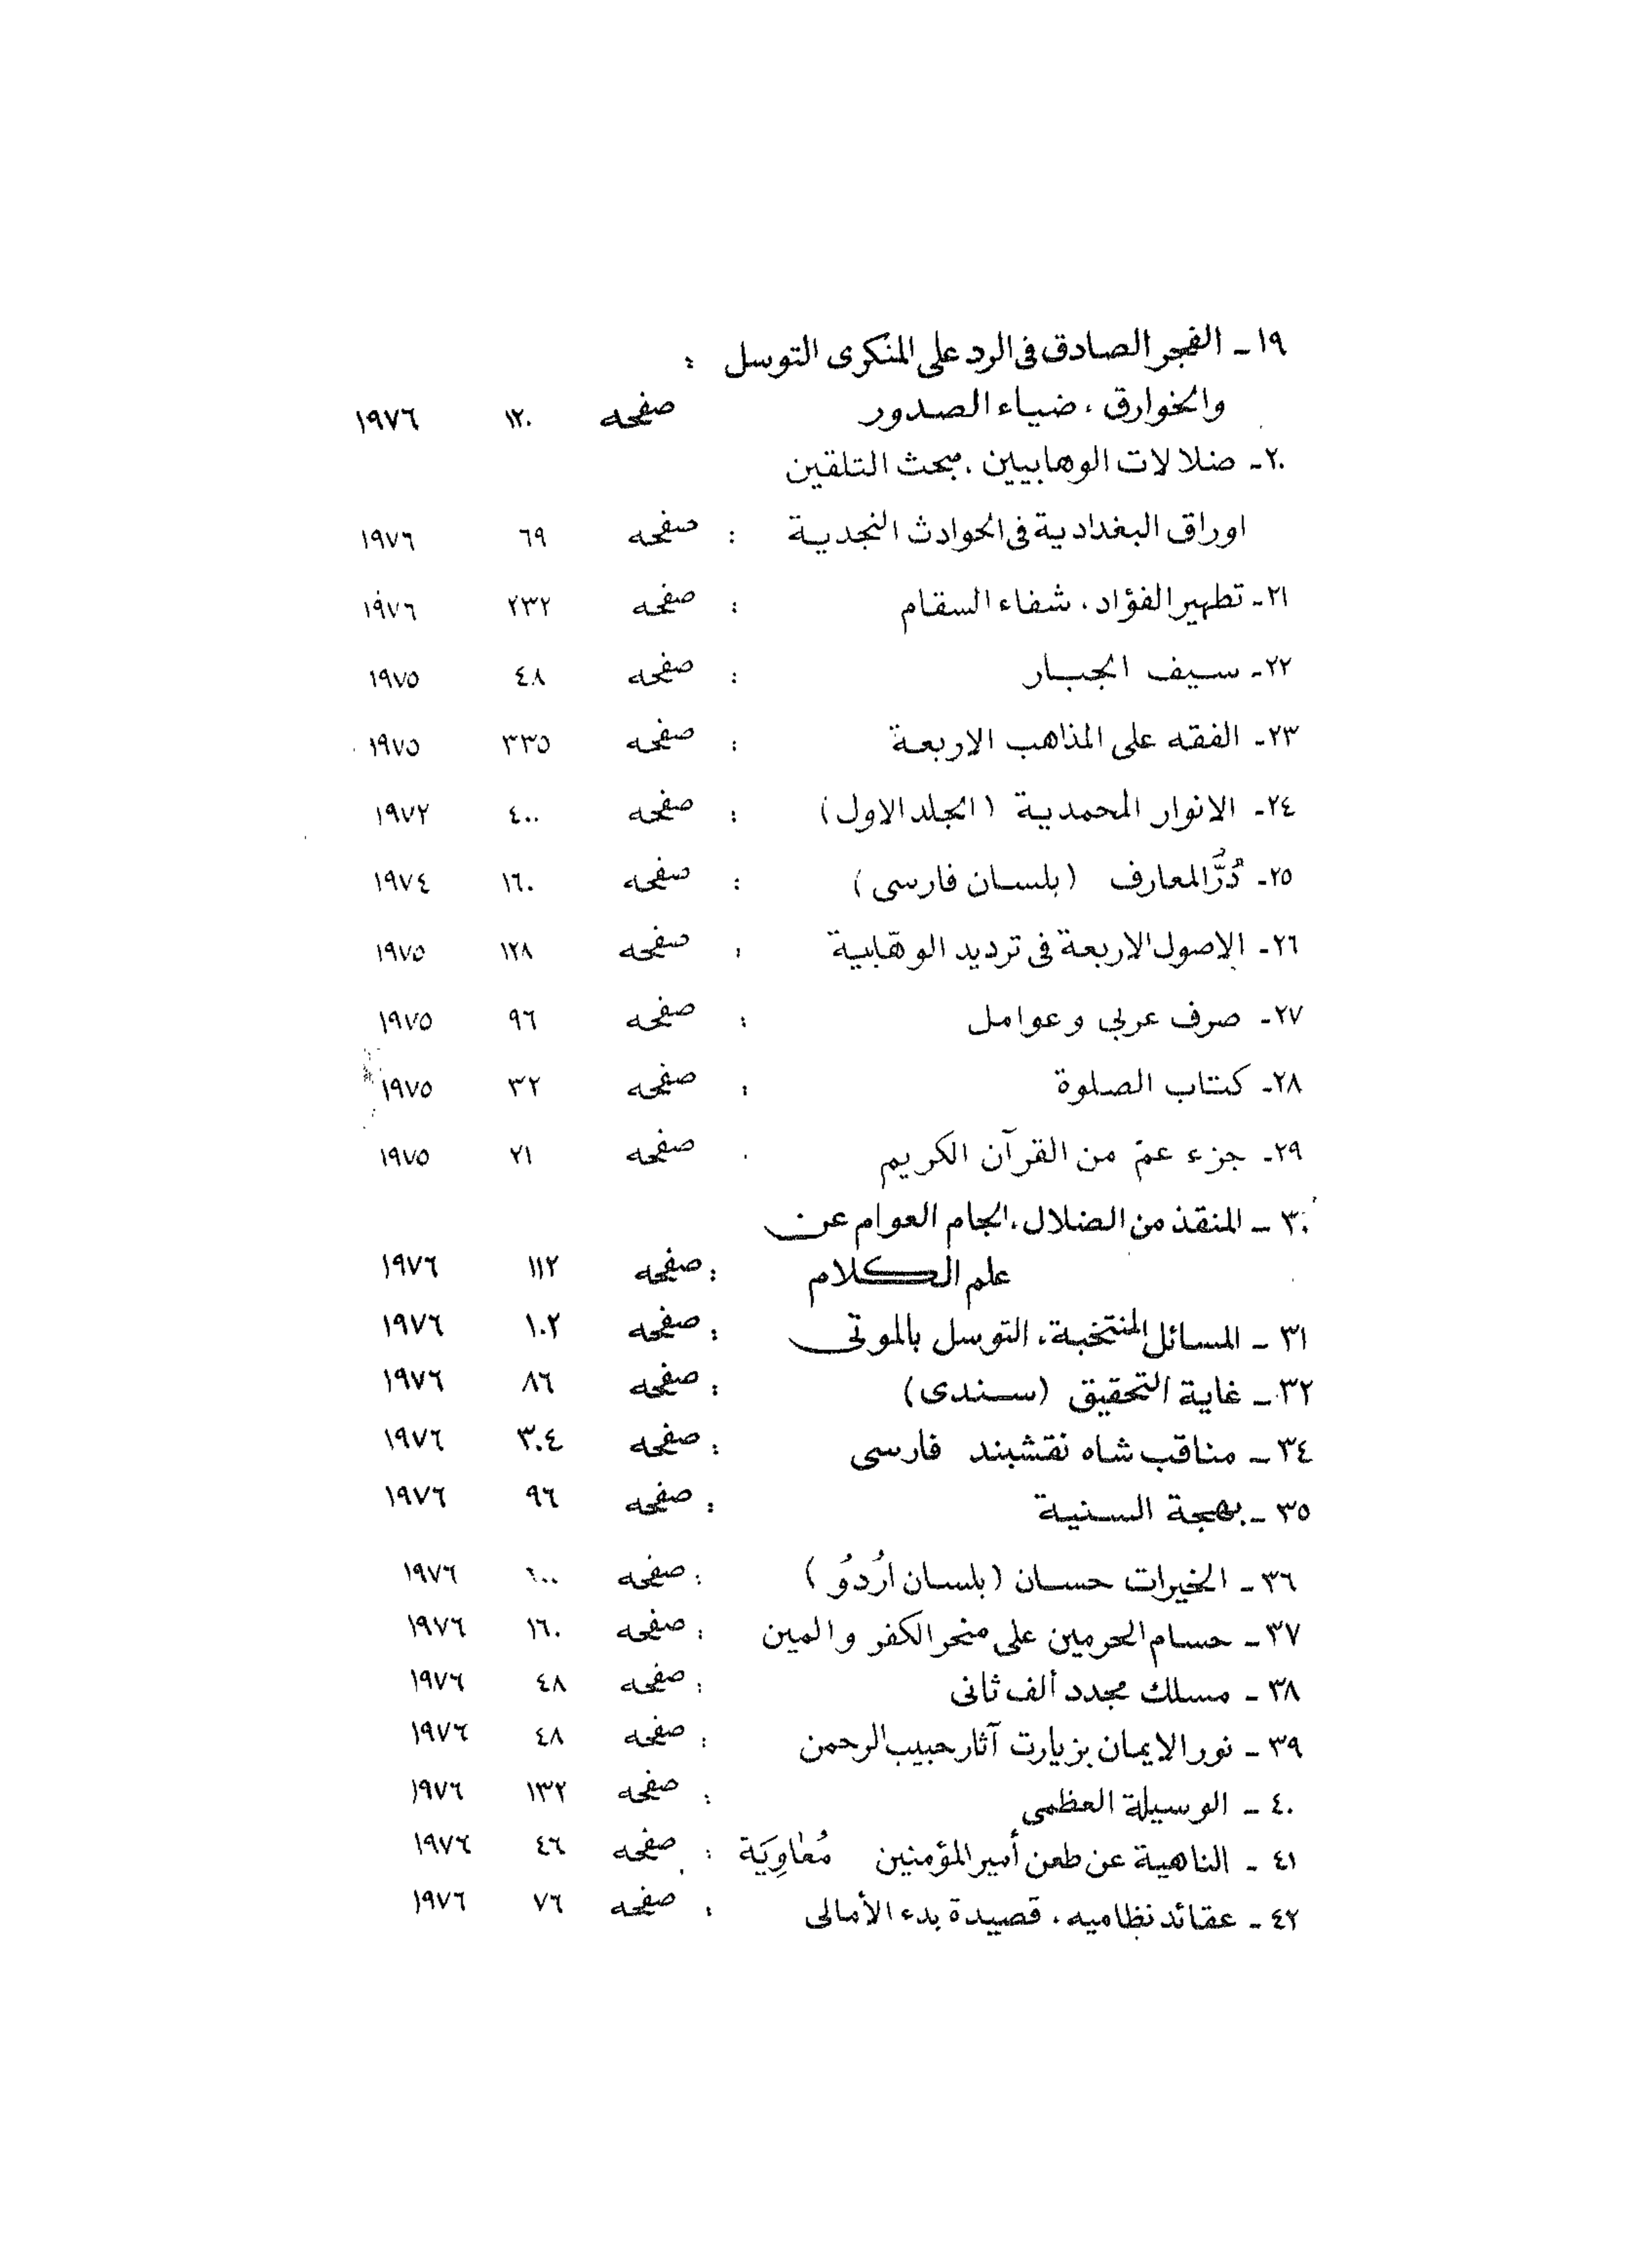 ١٩ - الفجر الصادق فى الرد على المنكرى التوسل :
والخوارق ، ضياء الصدور صفحه ١٢٠ ١٩٧٦
٢٠ - ضلالات الوهابيين ، مبحث التلقين
اوراق البغدادية فى الحوادث النجدية : صفحه ٦٩ ١٩٧٦
٢١ - تطهير الفؤاد ، شفاء السقام : صفحه ٢٣٢ ١٩٧٦
٢٢ - سيف الجبار : صفحه ٤٨ ١٩٧٥
٢٣ - الفقه على المذاهب الاربعة : صفحه ٣٣٥ ١٩٧٥
٢٤ - الانوار المحمدية ( الجلد الاول ) : صفحه ٤٠٠ ١٩٧٢
٢٥ - دُرُّ المعارف ( بلسان فارسى ) : صفحه ١٦٠ ١٩٧٤
٢٦ - الاصول الاربعة فى ترديد الوهّابية : صفحه ١٢٨ ١٩٧٥
٢٧ - صرف عربي و عوامل : صفحه ٩٦ ١٩٧٥
٢٨ - كتاب الصلوة : صفحه ٣٢ ١٩٧٥
٢٩ - جزء عمّ من القرآن الكريم صفحه ٢١ ١٩٧٥
٣٠ - المنقذ من الضلال ، الجام العوام عن
علم الكلام : صفحه ١١٢ ١٩٧٦
٣١ - المسائل المنتخبة ، التوسل بالموتى : صفحه ١٠٢ ١٩٧٦
٣٢ - غاية التحقيق (سندى) : صفحه ٨٦ ١٩٧٦
٣٤ - مناقب شاه نقشبند فارسى : صفحه ٣٠٤ ١٩٧٦
٣٥ - بهجة السنية : صفحه ٩٦ ١٩٧٦
٣٦ - الخيرات حسان ( بلسان اُردوُ ) : صفحه ١٩٧٦
٣٧ - حسام الحرمين على منحر الكفر والمين : صفحه ١٦٠ ١٩٧٦
٣٨ - مسلك مجدد ألف ثانى : صفحه ٤٨ ١٩٧٦
٣٩ - نور الايمان بزيارت آثار حبيب الرحمن : صفحه ٤٨ ١٩٧٦
٤٠ - الوسيلة العظمى : صفحه ١٣٢ ١٩٧٦
٤١ - الناهية عن طعن أمير المؤمنين مُعَاوِيَة : صفحه ٤٦ ١٩٧٦
٤٢ - عقائد نظاميه ، قصيدة بدء الأمالى : صفحه ٧٦ ١٩٧٦